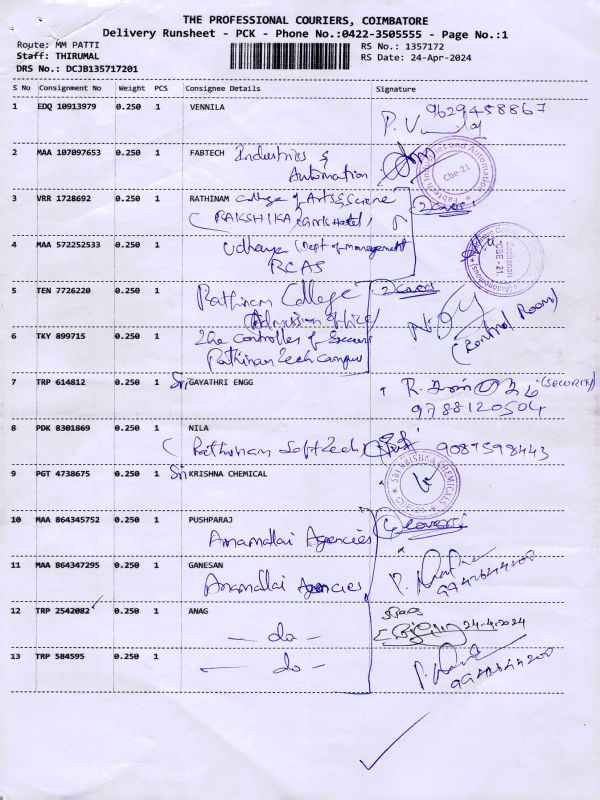 THE PROFESSIONAL COURIERS, COIMBATORE
Delivery Runsheet - PCK - Phone No.:0422-3505555 - Page No.:1
Route: MM PATTI
RS No.: 1357172
Staff: THIRUMAL
RS Date: 24-Apr-2024
DRS No.: DCJB135717201
S No Consignment No Weight PCS Consignee Details Signature
1 EDQ 10913979 0.250 1 VENNILA
9629458867
2 MAA 107097653 0.250 1 FABTECH Industries &
Automation
Fabtech Industries and Automation
Cbe-21
3 VRR 1728692 0.250 1 RATHINAM College of Arts & Science
(RAKSHIKA Girls Hostel)
2 Covers
4 MAA 572252533 0.250 1 Udhaya (Dept of management
RCAS
CBE-21.
5 TEN 7726220 0.250 1 Rathinam College
(Admission office)
2 Covers
6 TKY 899715 0.250 1 The Controller of
Rathinam Tech campus
(Control Room)
7 TRP 614812 0.250 1 Sri GAYATHRI ENGG
(SECURITY)
9788120504
8 PDK 8301869 0.250 1 NILA
(Rathinam Softech)
9087598443
9 PGT 4738675 0.250 1 Sri KRISHNA CHEMICAL
SRI KRISHNA CHEMICALS
10 MAA 864345752 0.250 1 PUSHPARAJ
Anamallai Agencies
11 MAA 864347295 0.250 1 GANESAN
Anamallai Agencies
12 TRP 2542082 0.250 1 ANAG
— do —
24-4-2024
13 TRP 584595 0.250 1
— do —